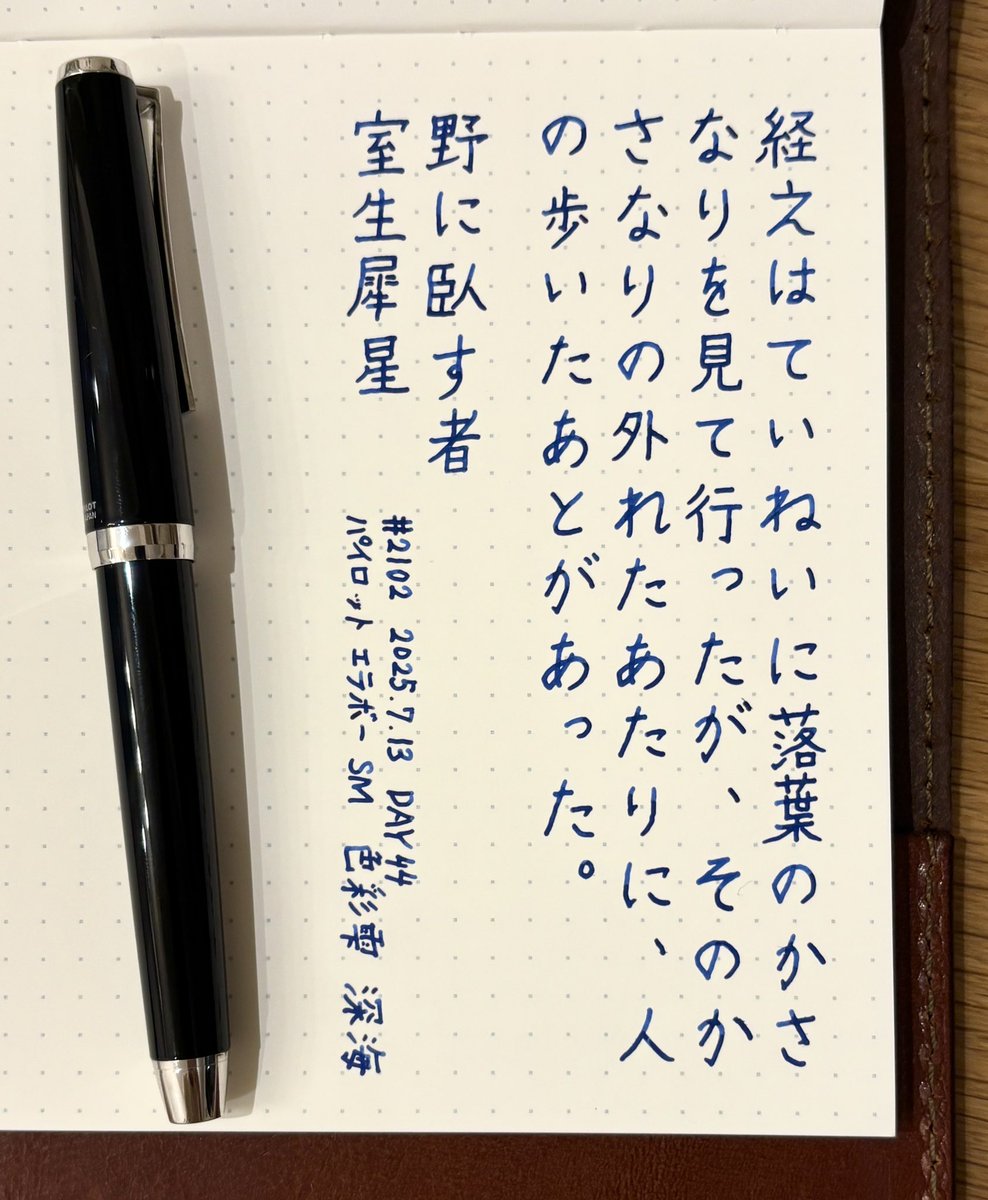 経えはていねいに落葉のかさ
なりを見て行ったが、そのか
さなりの外れたあたりに、人
の歩いたあとがあった。
野に臥す者
室生犀星
#2102 2025.7.13 DAY44
パイロット エラボー SM 色彩雫 深海